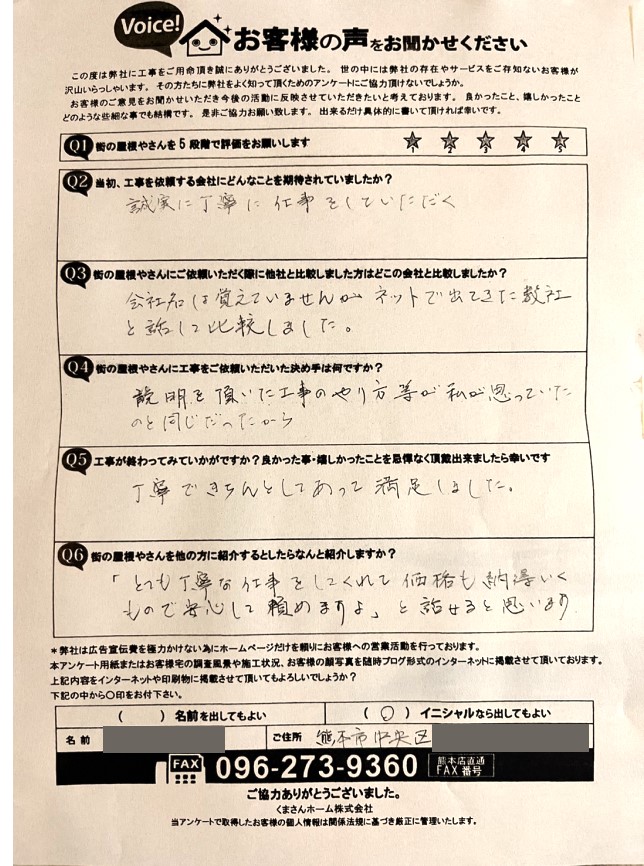 Voice! お客様の声をお聞かせください
この度は弊社に工事をご用命頂き誠にありがとうございました。 世の中には弊社の存在やサービスをご存知ないお客様が
沢山いらっしゃいます。 その方たちに弊社をよく知って頂くためのアンケートにご協力頂けないでしょうか。
お客様のご意見をお聞かせいただき今後の活動に反映させていただきたいと考えております。 良かったこと、嬉しかったこと
どのような些細な事でも結構です。 是非ご協力お願い致します。 出来るだけ具体的に書いて頂ければ幸いです。
Q1 街の屋根やさんを5段階で評価をお願いします
1 2 3 4 5
Q2 当初、工事を依頼する会社にどんなことを期待されていましたか?
誠実に丁寧に仕事をしていただく
Q3 街の屋根やさんにご依頼いただく際に他社と比較しました方はどこの会社と比較しましたか?
会社名は覚えていませんが ネットで出てきた数社
と話して比較しました。
Q4 街の屋根やさんに工事をご依頼いただいた決め手は何ですか?
説明を頂いた工事のやり方等が私が思っていた
のと同じだったから
Q5 工事が終わってみていかがですか?良かった事・嬉しかったことを忌憚なく頂戴出来ましたら幸いです
丁寧できちんとしてあって満足しました。
Q6 街の屋根やさんを他の方に紹介するとしたらなんと紹介しますか?
「とても丁寧な仕事をしてくれて価格も納得いく
もので安心して頼めますよ」と話せると思います
*弊社は広告宣伝費を極力かけない為にホームページだけを頼りにお客様への営業活動を行っております。
本アンケート用紙またはお客様宅の調査風景や施工状況、お客様の顔写真を随時ブログ形式のインターネットに掲載させて頂いております。
上記内容をインターネットや印刷物に掲載させて頂いてもよろしいでしょうか?
下記の中から〇印をお付下さい。
( ) 名前を出してもよい ( 〇 ) イニシャルなら出してもよい
名前 ご住所 熊本市中央区
FAX 096-273-9360 熊本店直通 FAX番号
ご協力ありがとうございました。
くまさんホーム株式会社
当アンケートで取得したお客様の個人情報は関係法規に基づき厳正に管理いたします。